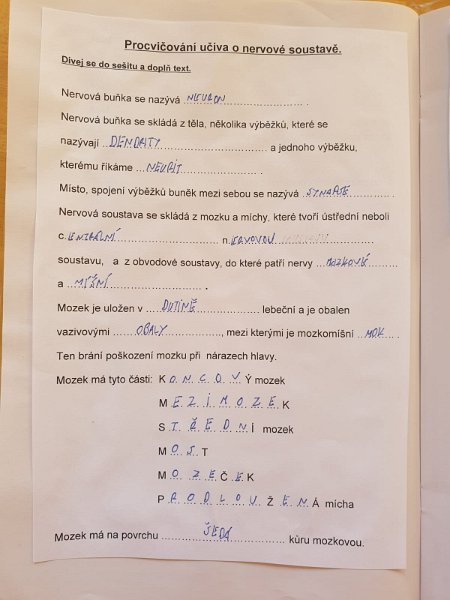 Procvičování učiva o nervové soustavě.
Dívej se do sešitu a doplň text.
Nervová buňka se nazývá NEURON .
Nervová buňka se skládá z těla, několika výběžků, které se
nazývají DENDRITY a jednoho výběžku,
kterému říkáme NEURIT .
Místo, spojení výběžků buněk mezi sebou se nazývá SYNAPSE
Nervová soustava se skládá z mozku a míchy, které tvoří ústřední neboli
c. ENTRÁLNÍ n. ERVOVOU
soustavu, a z obvodové soustavy, do které patří nervy MOZKOVÉ
a MÍŠNÍ .
Mozek je uložen v DUTINĚ lebeční a je obalen
vazivovými OBALY , mezi kterými je mozkomíšní MOK .
Ten brání poškození mozku při nárazech hlavy.
Mozek má tyto části: K O N C O V Ý mozek
M E Z I M O Z E K
S T Ř E D N Í mozek
M O S T
M O Z E Č E K
P R O D L O U Ž E N Á mícha
Mozek má na povrchu ŠEDÁ kůru mozkovou.